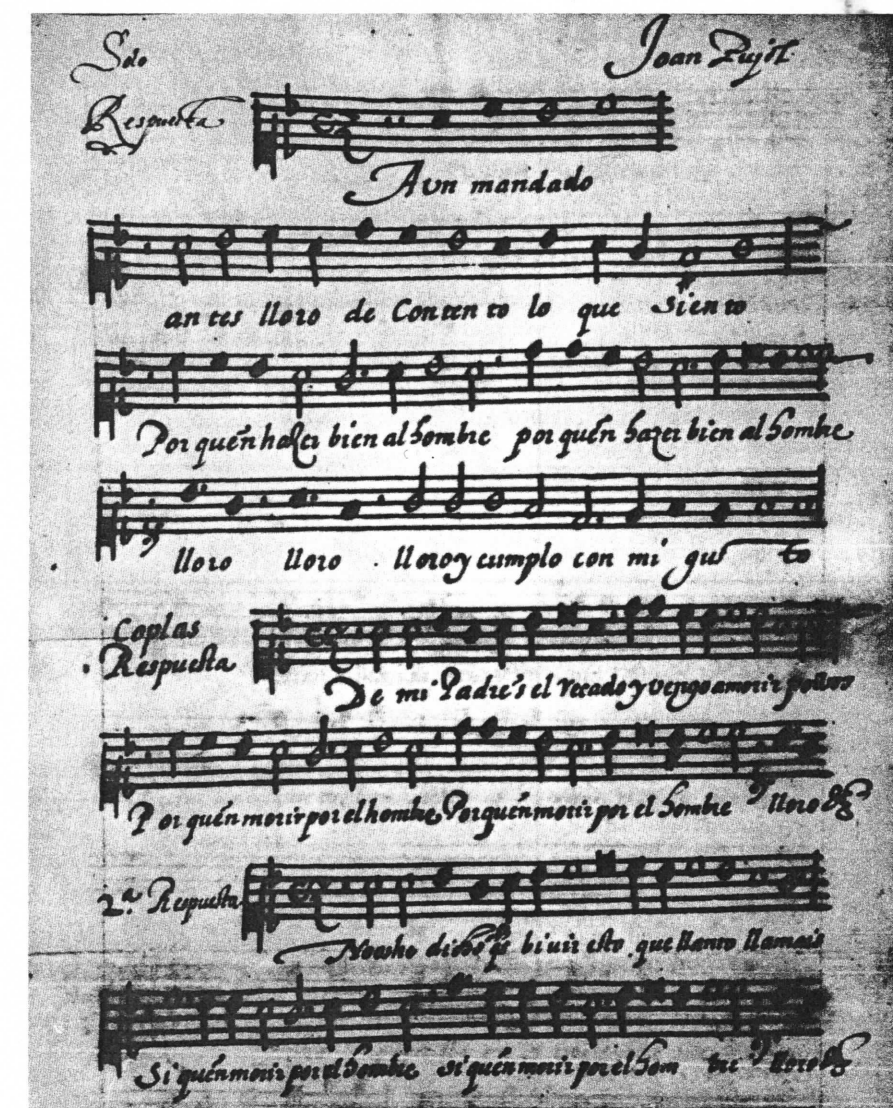 Solo
Joan Pujol
Respuesta
A un mandado
antes lloro de Contento lo que siento
Por quen hazer bien al hombre por quen hazer bien al hombre
lloro lloro lloro y cumplo con mi gusto
Coplas
Respuesta
De mi Padre's el recado y vengo a morir por
Por quen morir por el hombre Por quen morir por el hombre lloro &c
2.ª Respuesta
bivir esto que llanto llamais
Si quen morir por el hombre si quen morir por el hom bre lloro &c